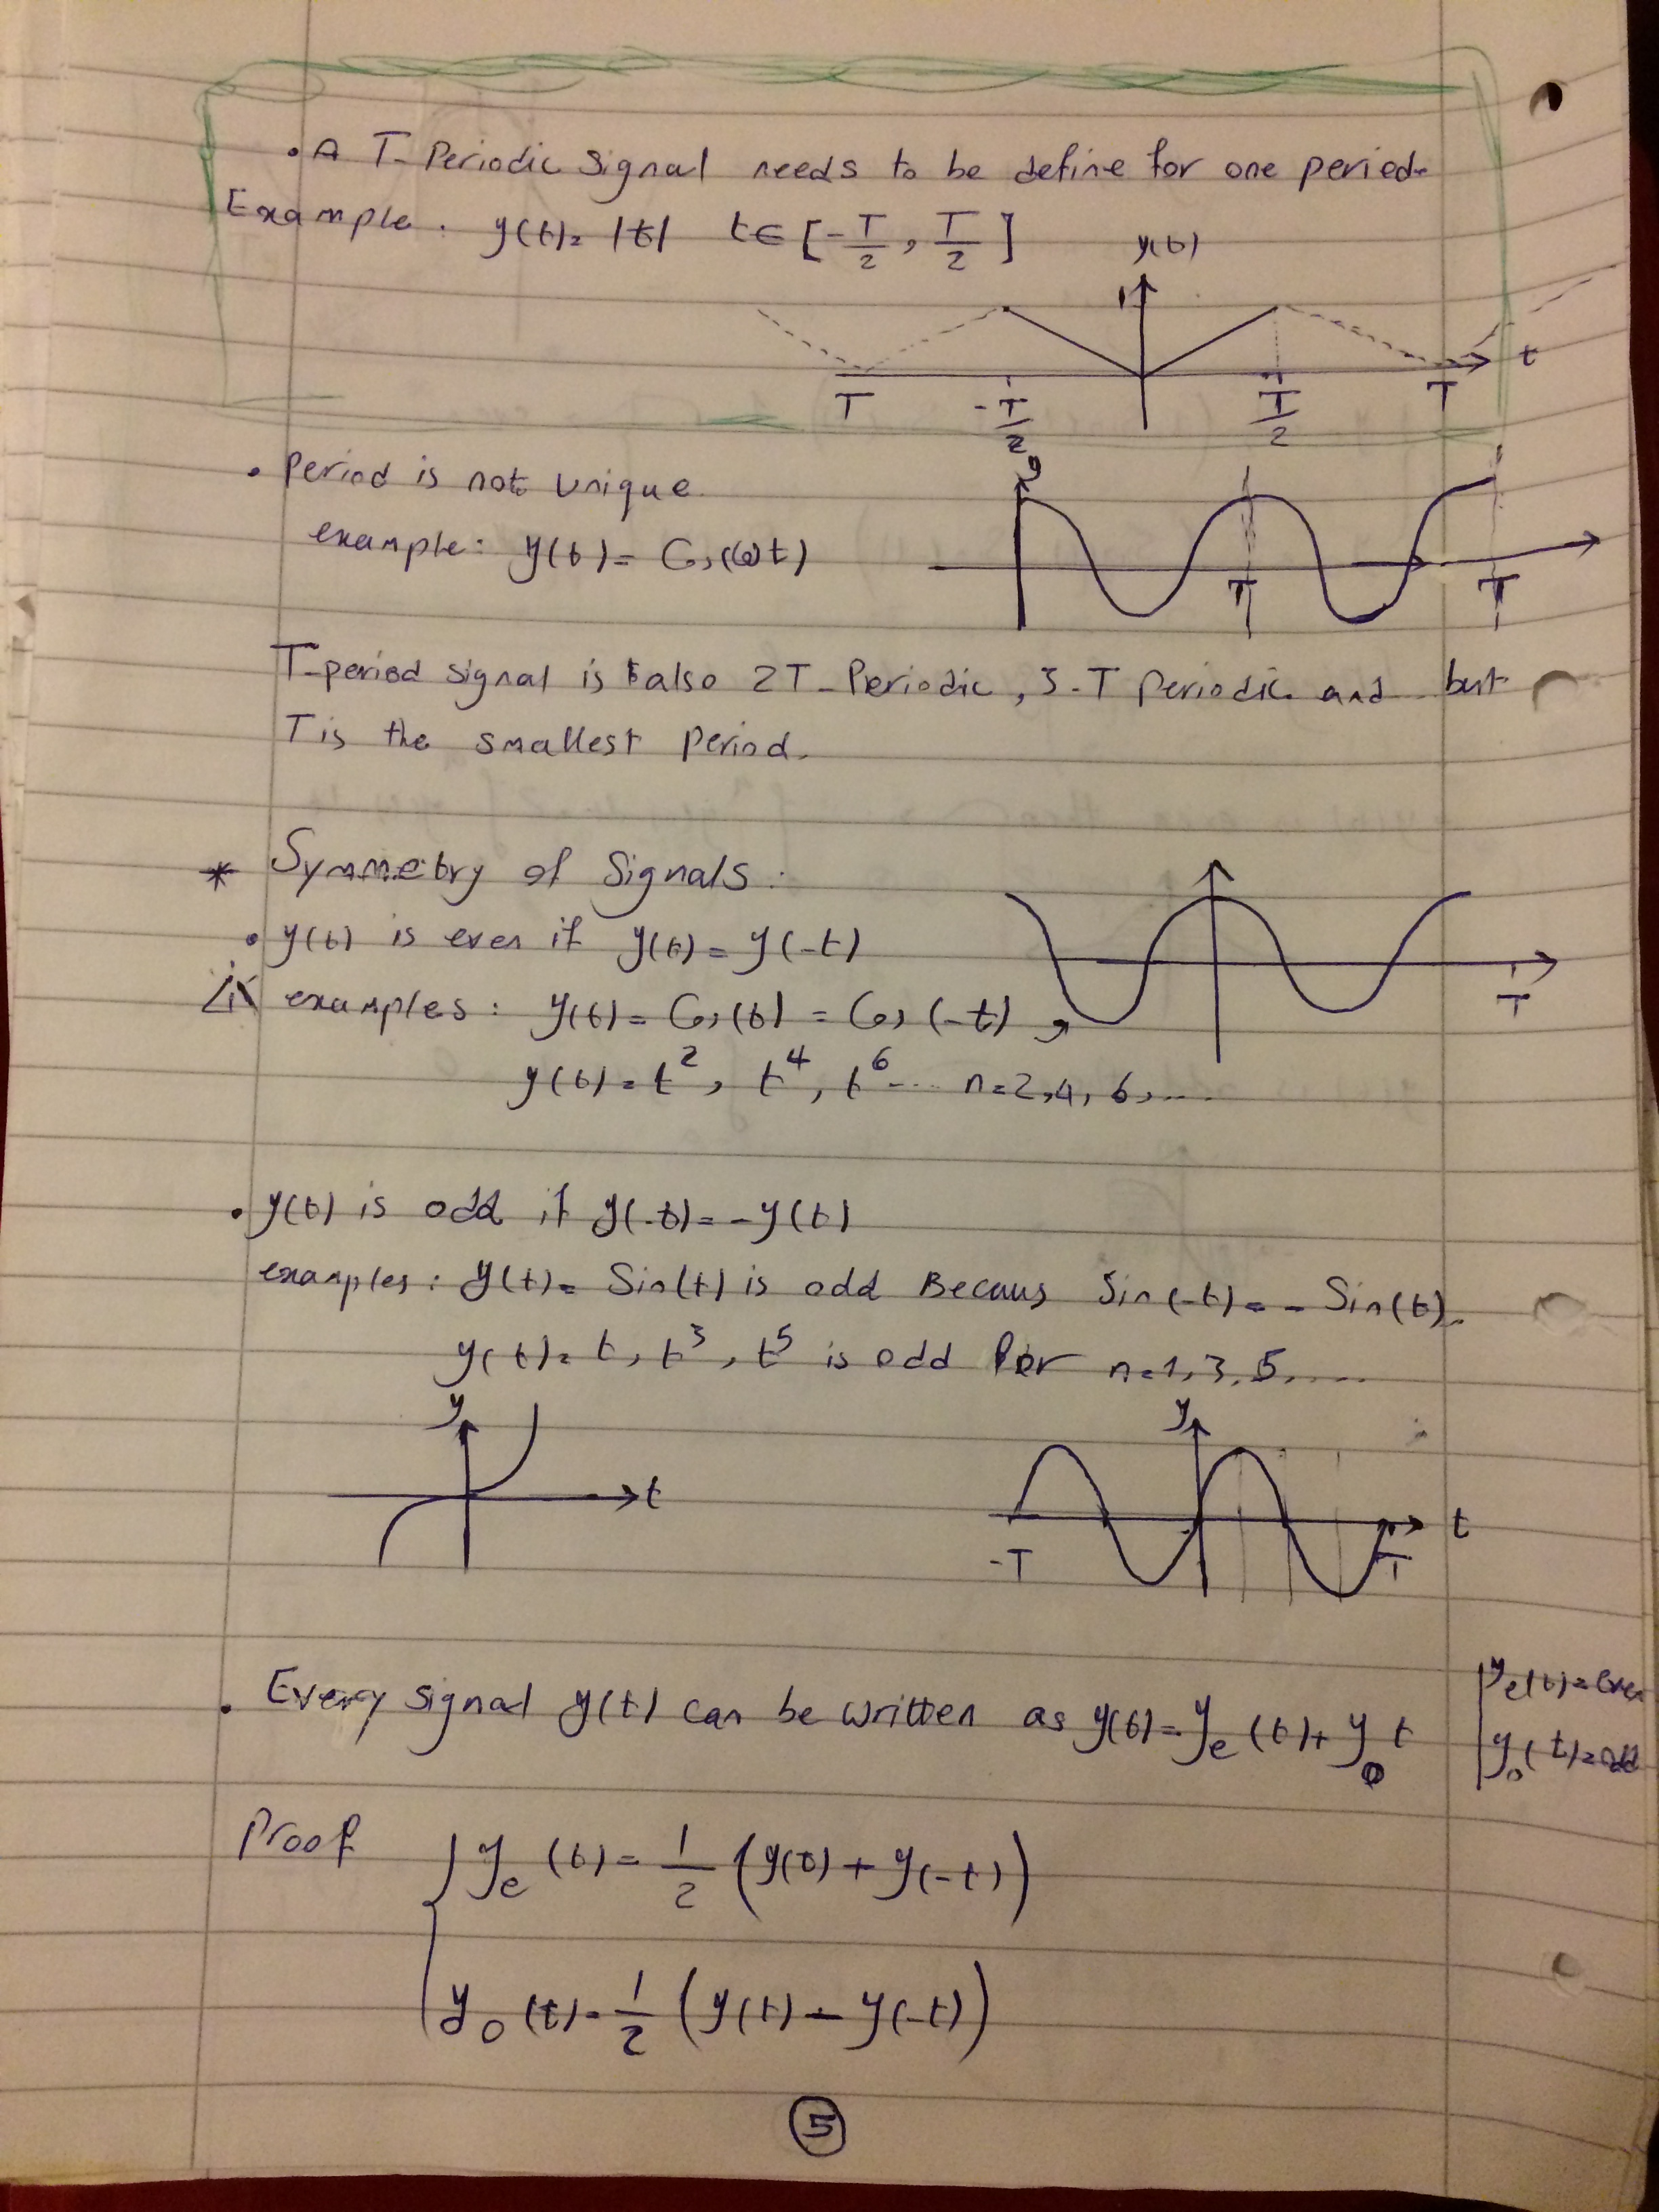 • A T-Periodic signal needs to be define for one period.
Example. y(t)= |t| t∈[-T/2, T/2]
y(t)
1
t
T -T/2 T/2 T
• Period is not unique.
example: y(t)= Cos(ωt)
y
T T
T-period signal is also 2T-Periodic, 3-T Periodic. and but
T is the smallest Period.
* Symmetry of Signals:
• y(t) is even if y(t)=y(-t)
examples: y(t)= Cos(t) = Cos(-t)
T
y(t)=t², t⁴, t⁶... n=2,4,6,....
• y(t) is odd if y(-t)=-y(t)
examples: y(t)= Sin(t) is odd Becaus Sin(-t)=-Sin(t).
y(t)= t, t³, t⁵ is odd for n=1,3,5,....
y t
y t
-T T
• Every signal y(t) can be written as y(t)=yₑ(t)+y₀ t
yₑ(t)=even
y₀(t)=odd
Proof yₑ(t)= 1/2 (y(t)+y(-t))
y₀(t)= 1/2 (y(t)-y(-t))
5